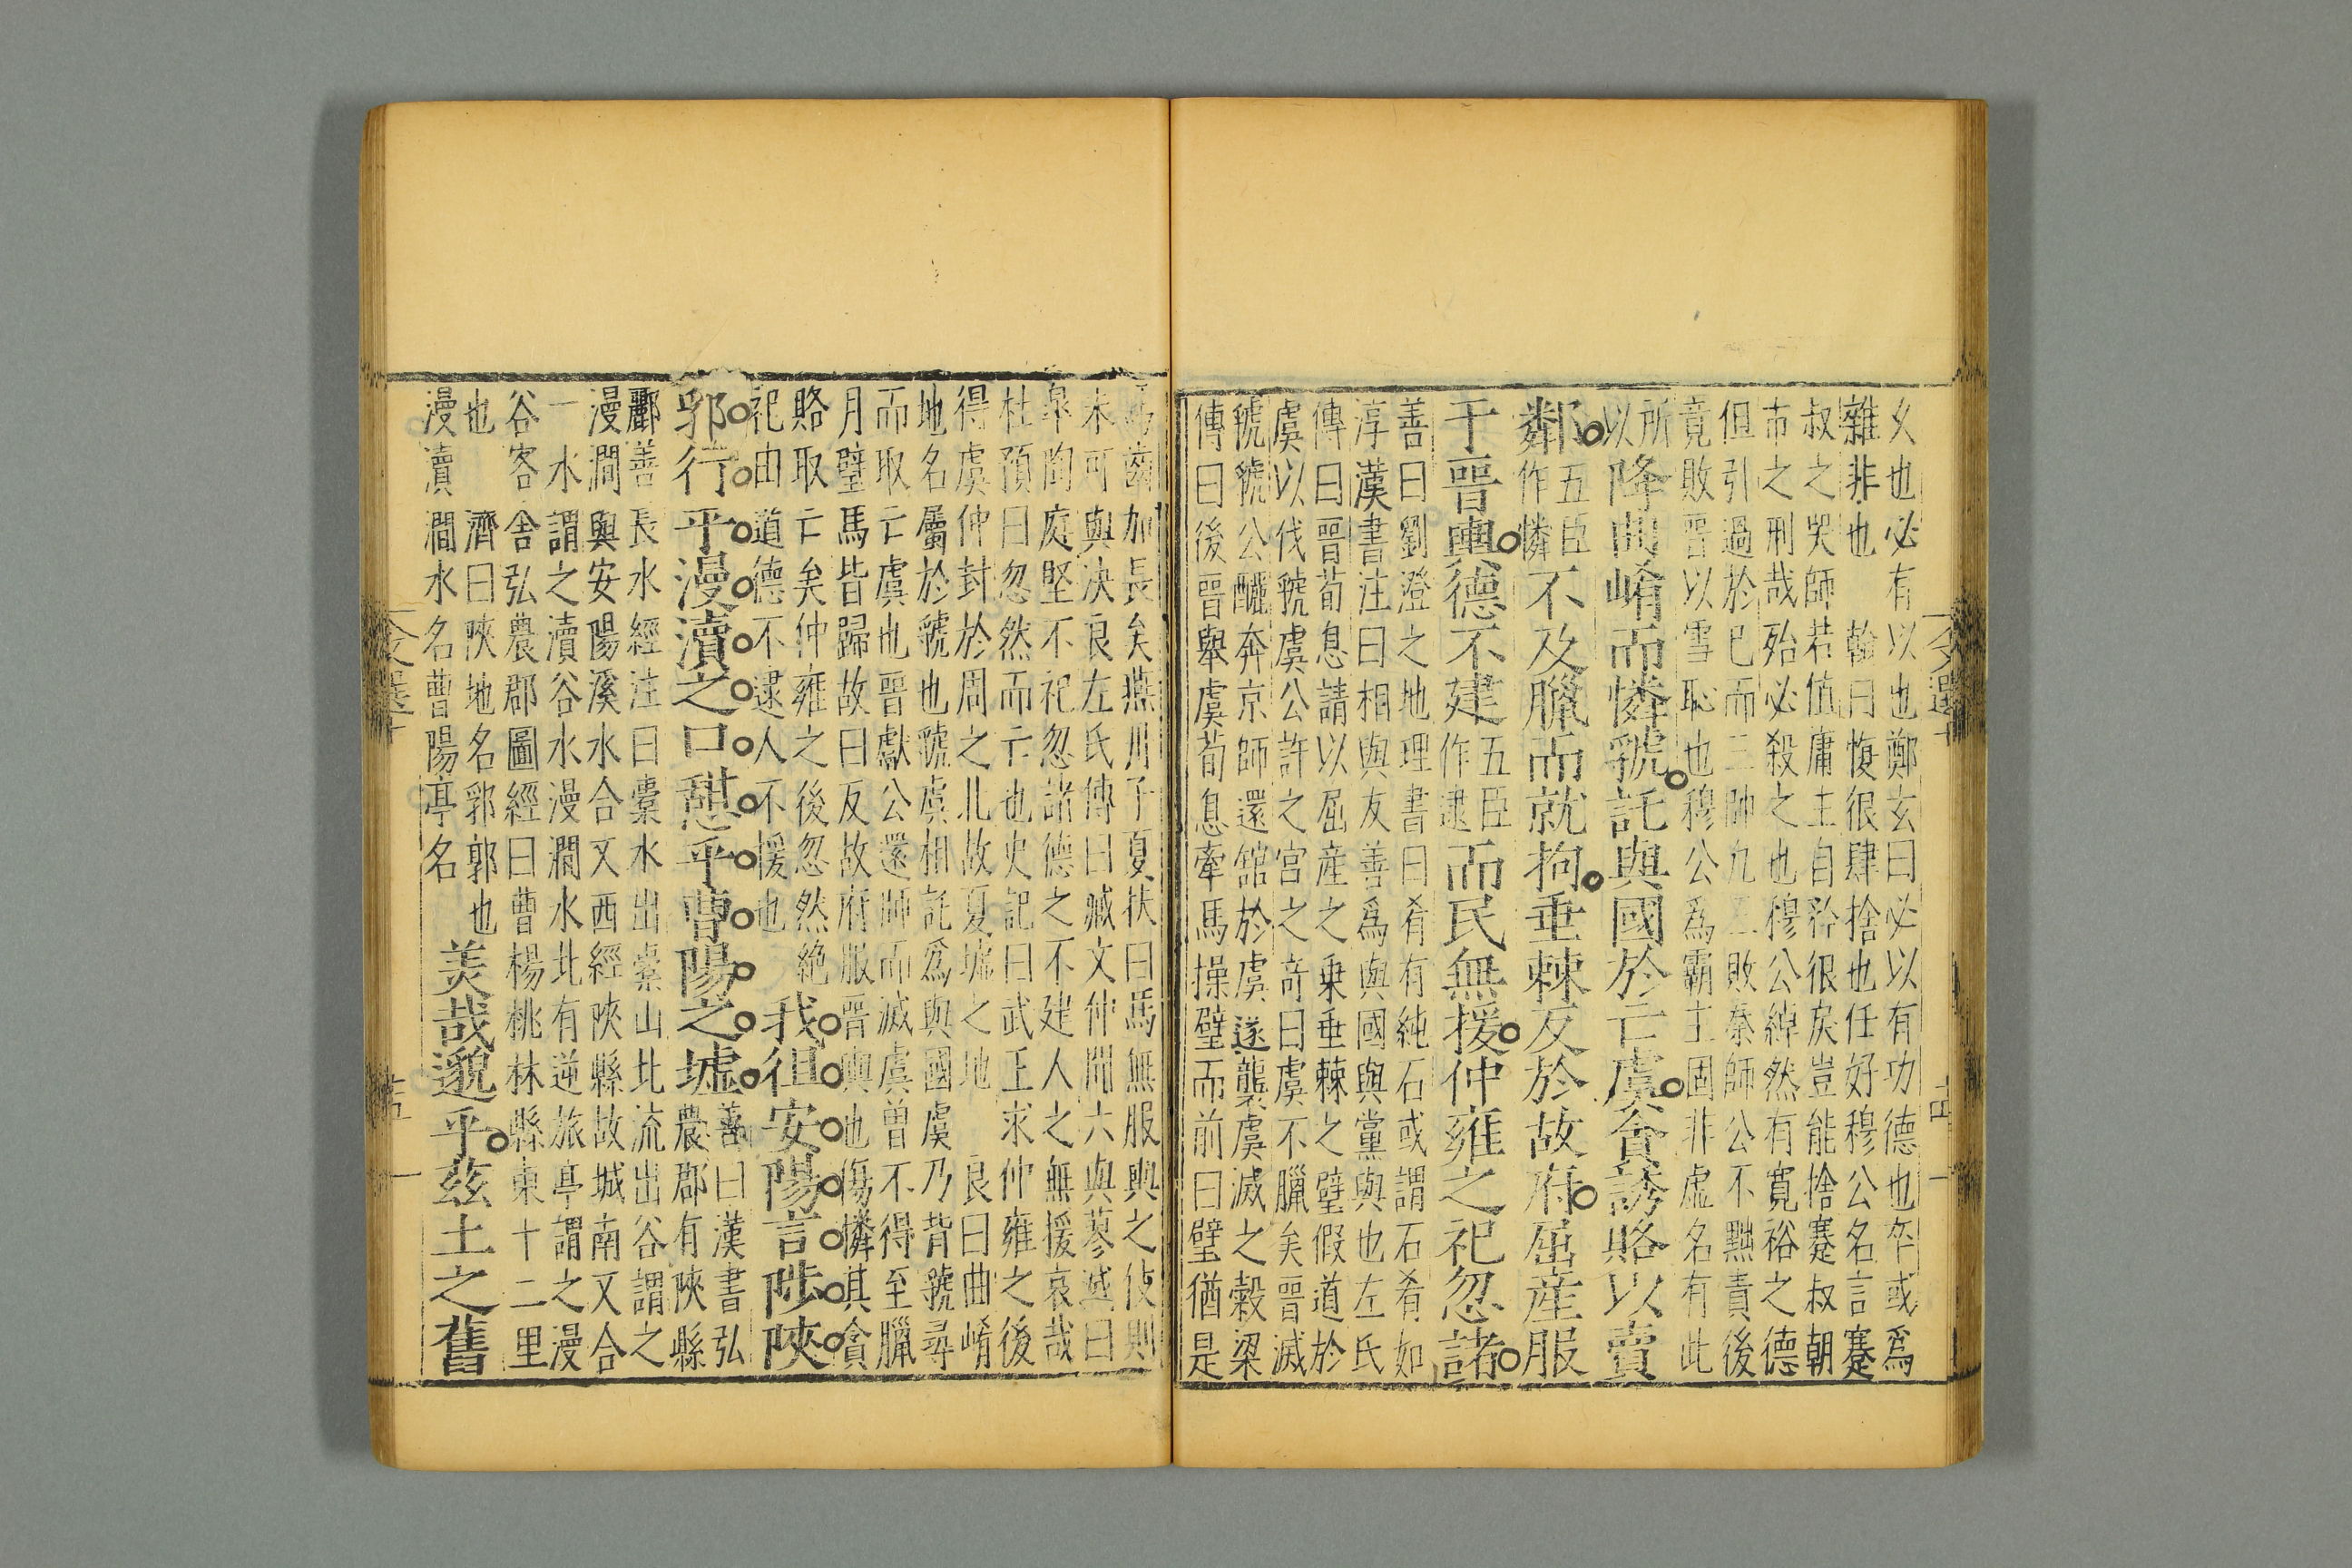 乆也必有以也鄭玄曰必以有功德也卒或爲
雜非也　翰曰愎很肆捨也任好穆公名言蹇
叔之哭師若值庸主自矜很戾豈能捨蹇叔朝
市之刑哉殆必殺之也穆公綽然有寛裕之德
但引過於已而三帥九三敗秦師公不黜責後
竟敗晉以雪恥也穆公爲霸主固非虛名有此
所
以降曲崤而憐虢託與國於亡虞貪誘賂以賣
鄰五臣
作憐不及臘而就拘垂棘反於故府屈産服
于晉輿德不建五臣
作逮而民無援仲雍之祀忽諸
善曰劉澄之地理書曰肴有純石或謂石肴如
淳漢書注曰相與友善爲與國與黨與也左氏
傳曰晉荀息請以屈産之乗垂棘之璧假道於
虞以伐虢虞公許之宮之奇曰虞不臘矣晉滅
虢虢公醜奔京師還舘於虞遂襲虞滅之穀梁
傳曰後晉舉虞荀息牽馬操璧而前曰璧猶是
馬齒加長矣燕川子夏扶曰馬無服輿之伎則
未可與決良左氏傳曰臧文仲聞六與蓼滅曰
皐陶庭堅不祀忽諸德之不建人之無援哀哉
杜預曰忽然而亡也史記曰武王求仲雍之後
得虞仲封於周之北故夏墟之地　良曰曲崤
地名屬於虢也虢虞相託爲與國虞乃背虢尋
而取亡虞也晉獻公還師而滅虞曽不得至臘
月璧馬皆歸故曰反故府服晉輿也傷憐其貪
賂取亡矣仲雍之後忽然絶
祀由道德不逮人不援也我徂安陽言陟陝
郛行乎漫瀆之口憩乎曹陽之墟善曰漢書弘
農郡有陝縣
酈善長水經注曰橐水出橐山北流出谷謂之
漫澗與安陽溪水合又西經陝縣故城南又合
一水謂之瀆谷水漫澗水北有逆旅亭謂之漫
谷客舎弘農郡圖經曰曹楊桃林縣東十二里
也　濟曰陝地名郛郭也
漫瀆澗水名曹陽亭名美哉邈乎兹土之舊